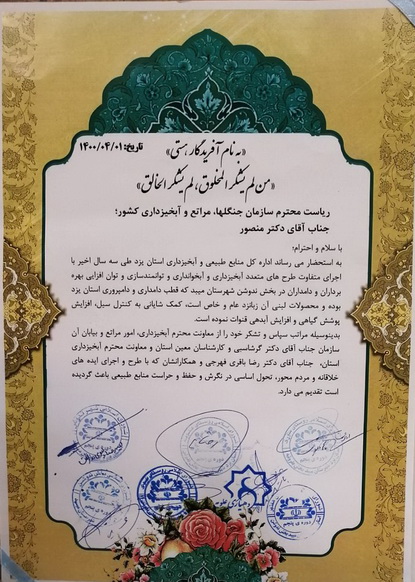 تاریخ: ۱۴۰۰/۰۴/۰۱
«به نام آفریدگار هستی»
«من لم یشکر المخلوق، لم یشکر الخالق»
ریاست محترم سازمان جنگلها، مراتع و آبخیزداری کشور؛
جناب آقای دکتر منصور
با سلام و احترام؛
به استحضار می رساند اداره کل منابع طبیعی و آبخیزداری استان یزد طی سه سال اخیر با
اجرای متفاوت طرح های متعدد آبخیزداری و آبخوانداری و توانمندسازی و توان افزایی بهره
برداران و دامداران در بخش ندوشن شهرستان میبد که قطب دامداری و دامپروری استان یزد
بوده و محصولات لبنی آن زبانزد عام و خاص است، کمک شایانی به کنترل سیل، افزایش
پوشش گیاهی و افزایش آبدهی قنوات نموده است.
بدینوسیله مراتب سپاس و تشکر خود را از معاونت محترم آبخیزداری، امور مراتع و بیابان آن
سازمان جناب آقای دکتر گرشاسبی و کارشناسان معین استان و معاونت محترم آبخیزداری
استان، جناب آقای دکتر رضا باقری فهرجی و همکارانشان که با طرح و اجرای ایده های
خلاقانه و مردم محور، تحول اساسی در نگرش و حفظ و حراست منابع طبیعی باعث گردیده
است تقدیم می دارد.